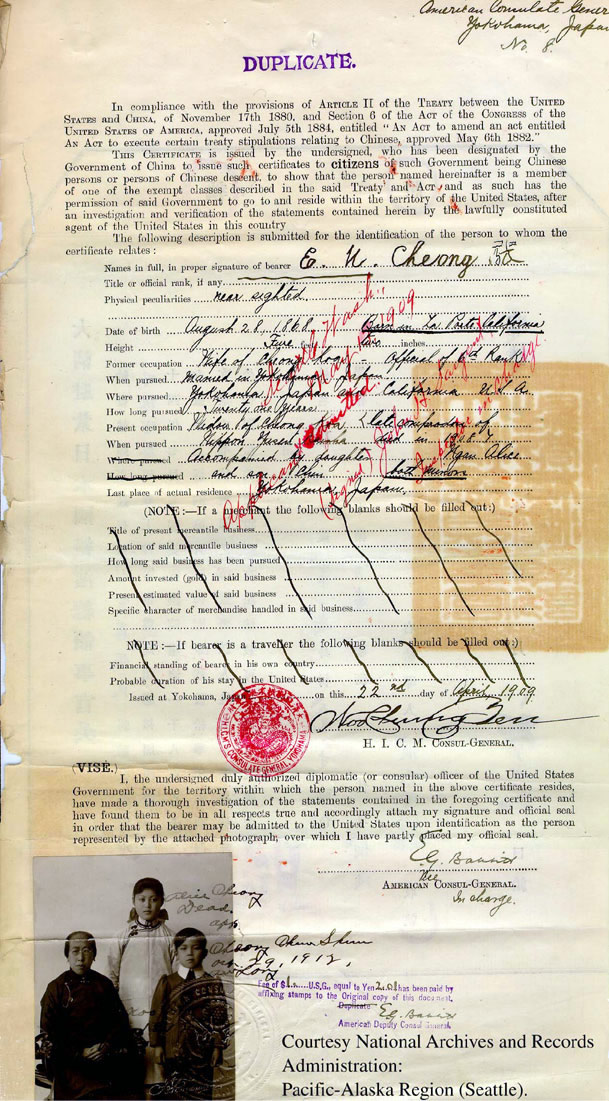 American Consulate General
Yokohama, Japan
No. 8.
DUPLICATE.
In compliance with the provisions of ARTICLE II of the TREATY between the UNITED
STATES and CHINA, of November 17th 1880, and Section 6 of the ACT of the CONGRESS of the
UNITED STATES OF AMERICA, approved July 5th 1884, entitled "AN ACT to amend an act entitled
AN ACT to execute certain treaty stipulations relating to Chinese, approved May 6th 1882."
THIS CERTIFICATE is issued by the undersigned, who has been designated by the
Government of China to issue such certificates to citizens of such Government being Chinese
persons or persons of Chinese descent, to show that the person named hereinafter is a member
of one of the exempt classes described in the said Treaty and Act, and as such has the
permission of said Government to go to and reside within the territory of the United States, after
an investigation and verification of the statements contained herein by the lawfully constituted
agent of the United States in this country
The following description is submitted for the identification of the person to whom the
certificate relates :
Names in full, in proper signature of bearer E. N. Cheong
Title or official rank, if any
Physical peculiarities near sighted
Date of birth August 28, 1868. Born in La Porte, California
Height Five feet two inches.
Former occupation Wife of Cheong official of 6th Rank
When pursued Married in Yokohama Japan
Where pursued Yokohama, Japan and California U.S.A.
How long pursued Twenty one years
Present occupation Widow of Cheong late comprador of
When pursued Nippon Yusen died in
Where pursued Accompanied by daughter Alice
How long pursued and son Chin both minors
Last place of actual residence Yokohama, Japan.
Applicant admitted
Seattle, Wash.,
May 1909
(signed)
Inspector in charge
(NOTE :—If a merchant the following blanks should be filled out :)
Title of present mercantile business
Location of said mercantile business
How long said business has been pursued
Amount invested (gold) in said business
Present estimated value of said business
Specific character of merchandise handled in said business
NOTE :—If bearer is a traveller the following blanks should be filled out :)
Financial standing of bearer in his own country
Probable duration of his stay in the United States
Issued at Yokohama, Japan on this 22nd day of April 1909
H. I. C. M. CONSUL-GENERAL.
H.I.C.M'S CONSULATE GENERAL, YOKOHAMA
(VISÉ.)
I, the undersigned duly authorized diplomatic (or consular) officer of the United States
Government for the territory within which the person named in the above certificate resides,
have made a thorough investigation of the statements contained in the foregoing certificate and
have found them to be in all respects true and accordingly attach my signature and official seal
in order that the bearer may be admitted to the United States upon identification as the person
represented by the attached photograph, over which I have partly placed my official seal.
Vice
AMERICAN CONSUL-GENERAL.
In charge.
Alice Cheong
Dead.
Cheong Chun Shun
29, 1912,
Fee of $1 U.S.G., equal to Yen 2.01 has been paid by
affixing stamps to the Original copy of this document.
Duplicate
American Deputy Consul General.
Courtesy National Archives and Records
Administration:
Pacific-Alaska Region (Seattle).